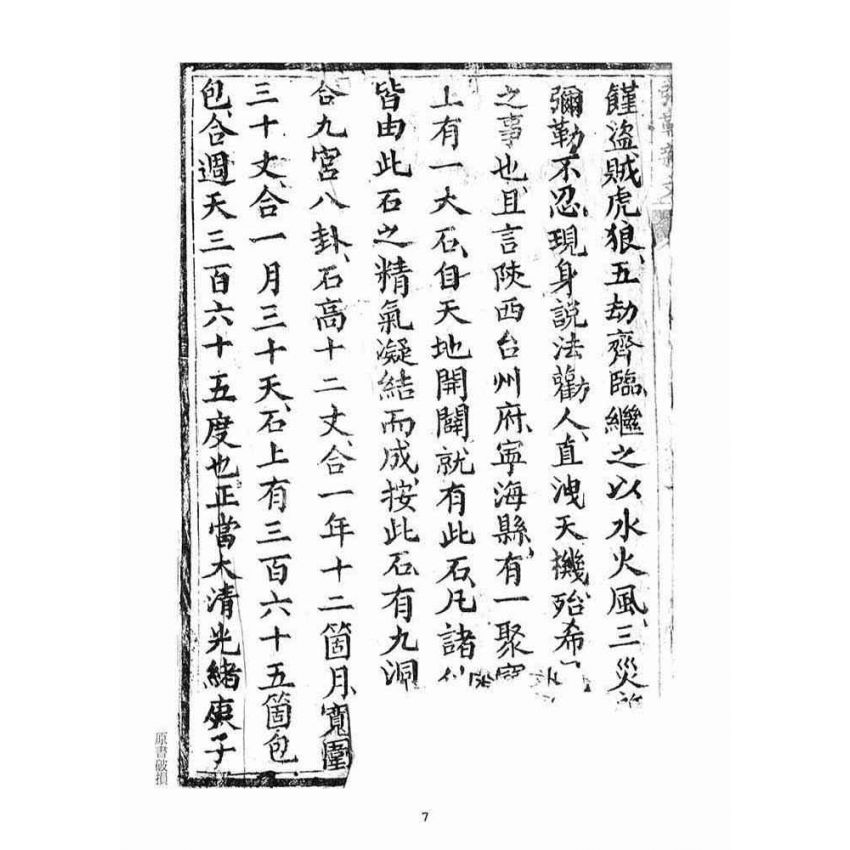 饉盜賊虎狼、五劫齊臨、繼之以水火風、三災
彌勒不忍、現身說法勸人、直洩天機殆希
之事也、且言陝西台州府、寧海縣、有一聚
上有一大石、自天地開闢就有此石、凡諸
皆由此石之精氣凝結而成、按此石有九洞
合九宮八卦、石高十二丈、合一年十二箇月、寬圍
三十丈、合一月三十天、石上有三百六十五箇包
包、合週天三百六十五度也、正當大清光緒庚子
原書破損
7